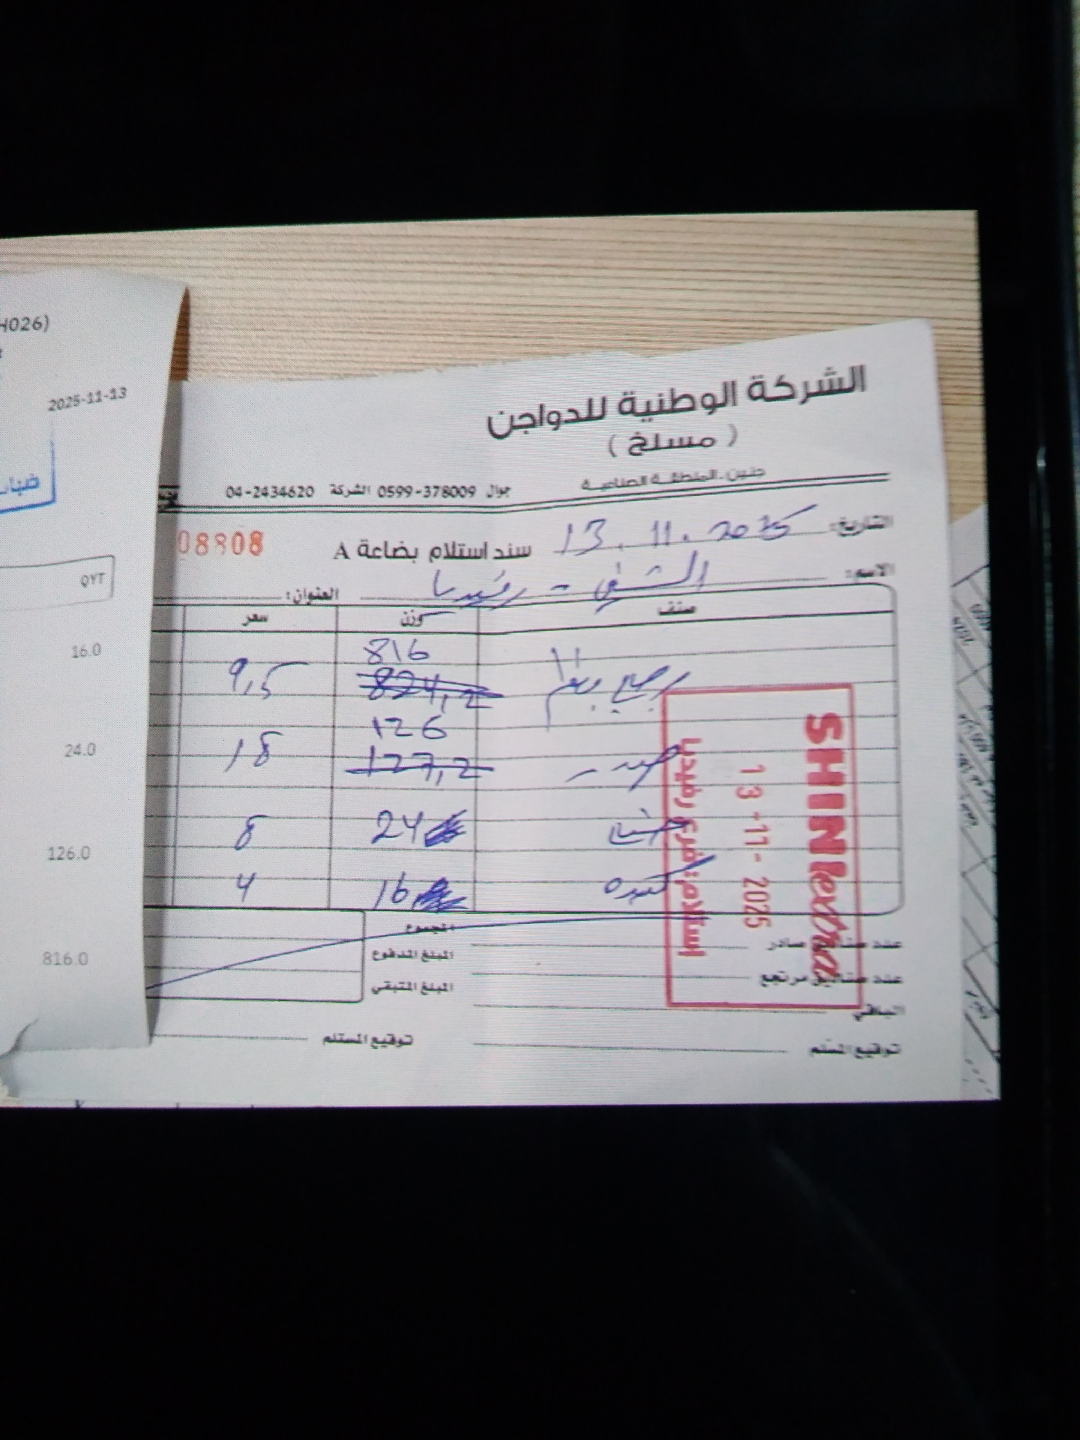 H026)
2025-11-13
QYT
16.0
24.0
126.0
816.0
الشركة الوطنية للدواجن
( مسلخ )
جنين ـ المنطقة الصناعية
جوال 0599-378009 الشركة 04-2434620
التاريخ: 13.11.2025
سند استلام بضاعة A
08808
الاسم: الشني - رفيديا
العنوان:
صنف وزن سعر
816
824,2 9,5
126
127,2 18
24 8
كبده 16 4
SHINI extra
13-11-2025
إستلام: فرع رفيديا
المجموع
المبلغ المدفوع
المبلغ المتبقي
عدد صناديق صادر
عدد صناديق مرتجع
الباقي
توقيع المسلم
توقيع المستلم